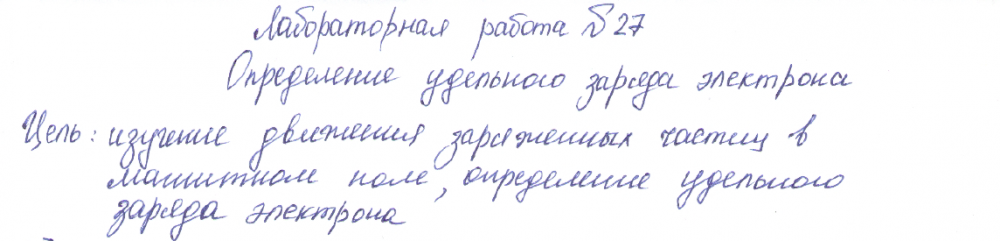 Лабораторная работа №27
Определение удельного заряда электрона
Цель: изучение движения заряженных частиц в
магнитном поле, определение удельного
заряда электрона